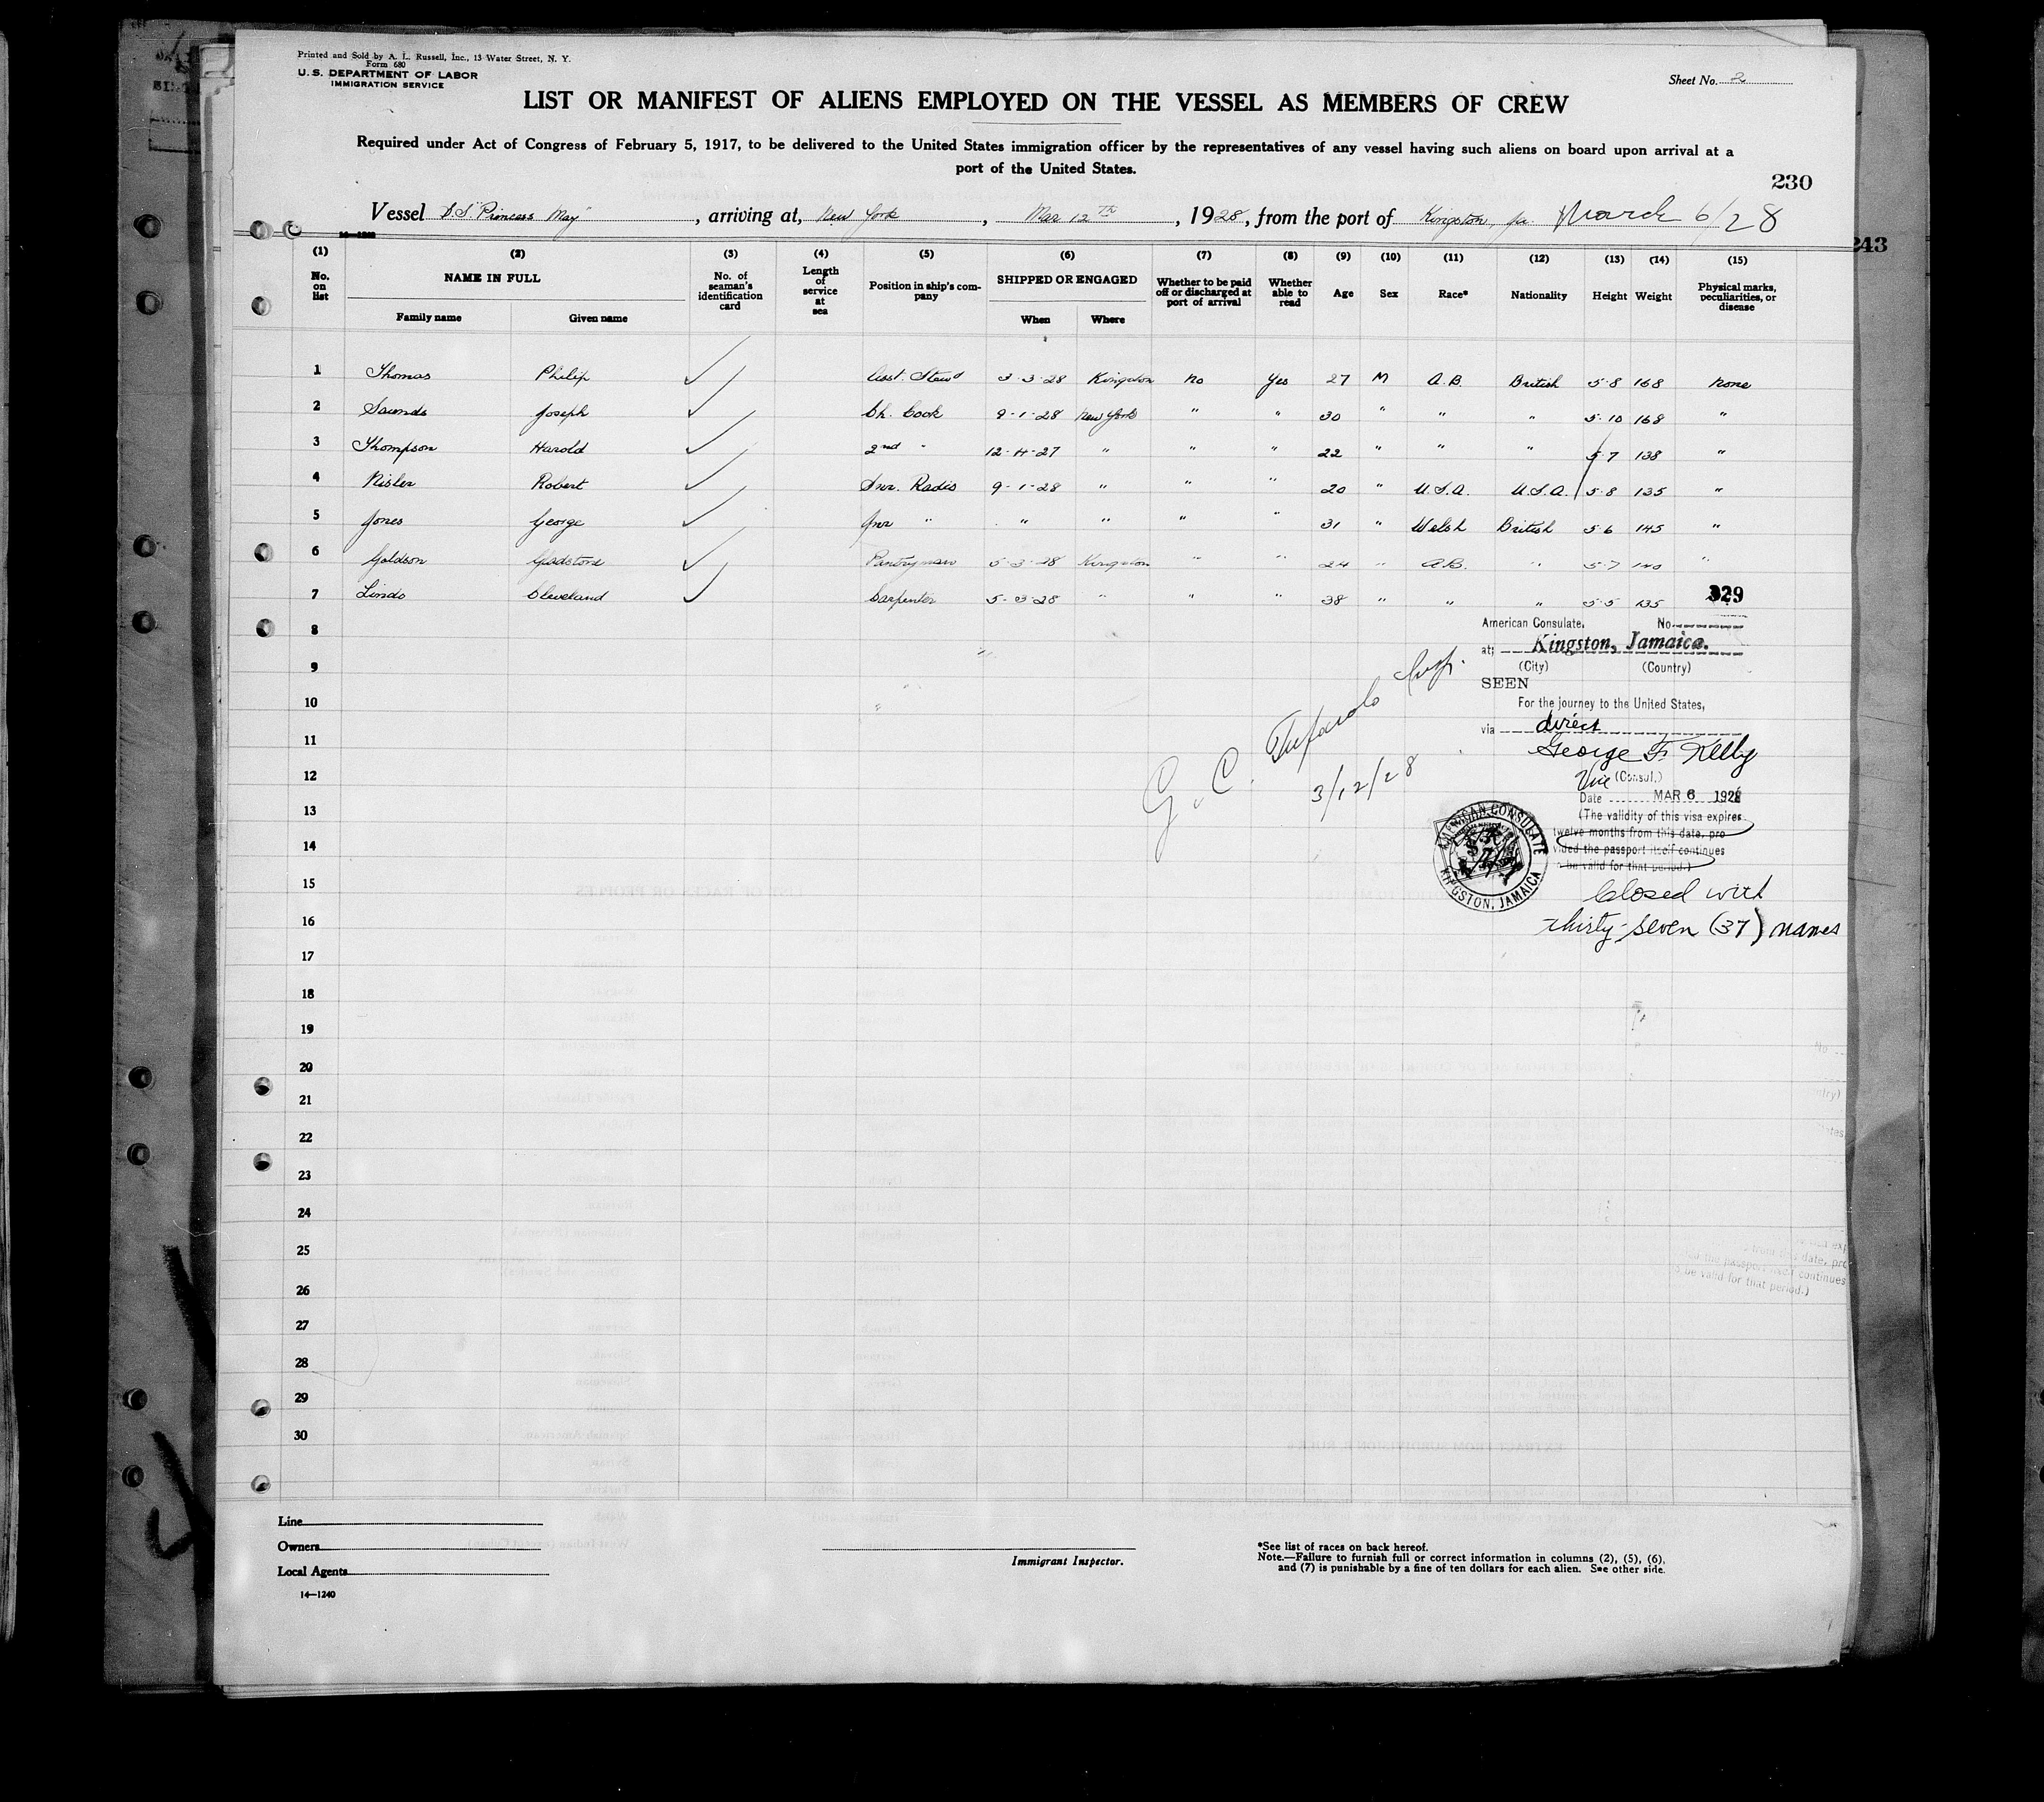 Printed and Sold by A. L. Russell, Inc., 13 Water Street, N. Y.
Form 680
U. S. DEPARTMENT OF LABOR
IMMIGRATION SERVICE
Sheet No. 2
LIST OR MANIFEST OF ALIENS EMPLOYED ON THE VESSEL AS MEMBERS OF CREW
Required under Act of Congress of February 5, 1917, to be delivered to the United States immigration officer by the representatives of any vessel having such aliens on board upon arrival at a
port of the United States.
230
Vessel S.S. "Princess May", arriving at, New York, Mar 12TH, 1928, from the port of Kingston, Ja. March 6/28
243
(1) (2) (3) (4) (5) (6) (7) (8) (9) (10) (11) (12) (13) (14) (15)
No. on list NAME IN FULL No. of seaman's identification card Length of service at sea Position in ship's company SHIPPED OR ENGAGED Whether to be paid off or discharged at port of arrival Whether able to read Age Sex Race* Nationality Height Weight Physical marks, peculiarities, or disease
Family name Given name When Where
1 Thomas Philip Asst. Stewd 3-3-28 Kingston No Yes 27 M A.B. British 5-8 168 None
2 Saunds Joseph Ch. Cook 9-1-28 New York " " 30 " " " 5-10 168 "
3 Thompson Harold 2nd " 12-4-27 " " " 22 " " " 5-7 138 "
4 Risler Robert Snr. Radio 9-1-28 " " " 20 " U.S.A. U.S.A. 5-8 135 "
5 Jones George Jnr " " " " " 31 " Welsh British 5-6 145 "
6 Goldson Gladstone Pantryman 5-3-28 Kingston " " 24 " A.B. " 5-7 140 "
7 Lindo Cleveland Carpenter 5-3-28 " " " 38 " " " 5-5 135
329
8
American Consulate, No.
at; Kingston, Jamaica.
9
(City) (Country)
SEEN
10
For the journey to the United States,
via direct
11
George F. Kelly
12
Vice (Consul.)
G. C. Insp.
3/12/28
Date MAR 6 1928
13
(The validity of this visa expires
twelve months from this date, pro
14
vided the passport itself continues
be valid for that period.)
AMERICAN CONSULATE
KINGSTON, JAMAICA
15
Closed with
16
thirty-seven (37) names
17
18
19
20
21
22
23
24
25
26
27
28
29
30
Line
Owners
Local Agents
14—1240
Immigrant Inspector.
*See list of races on back hereof.
Note.—Failure to furnish full or correct information in columns (2), (5), (6),
and (7) is punishable by a fine of ten dollars for each alien. See other side.